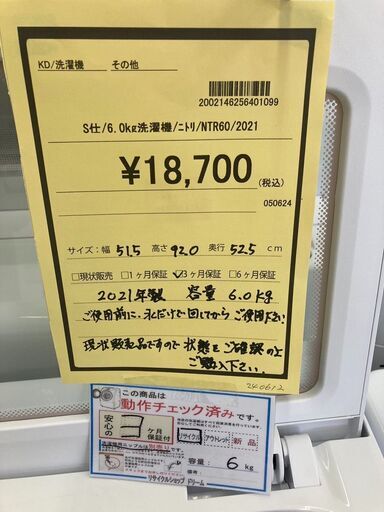 KD/洗濯機 その他
2002146256401099
S仕/6.0kg洗濯機/ニトリ/NTR60/2021
¥18,700(税込)
050624
サイズ:幅 51.5 高さ 92.0 奥行 52.5 cm
□現状販売 □1ヶ月保証 ☑3ヶ月保証 □6ヶ月保証
2021年製 容量 6.0kg
ご使用前に、水だけで回してからご使用下さい
現状販売品ですので状態をご確認の上
ご購入下さい.
240612
この商品は
動作チェック済みです。
安心の 3 ヶ月保証付
リサイクル アウトレット 新品
洗濯機用ニップルは別売り
容量: 6 kg
備考:
リサイクルショップ ドリーム